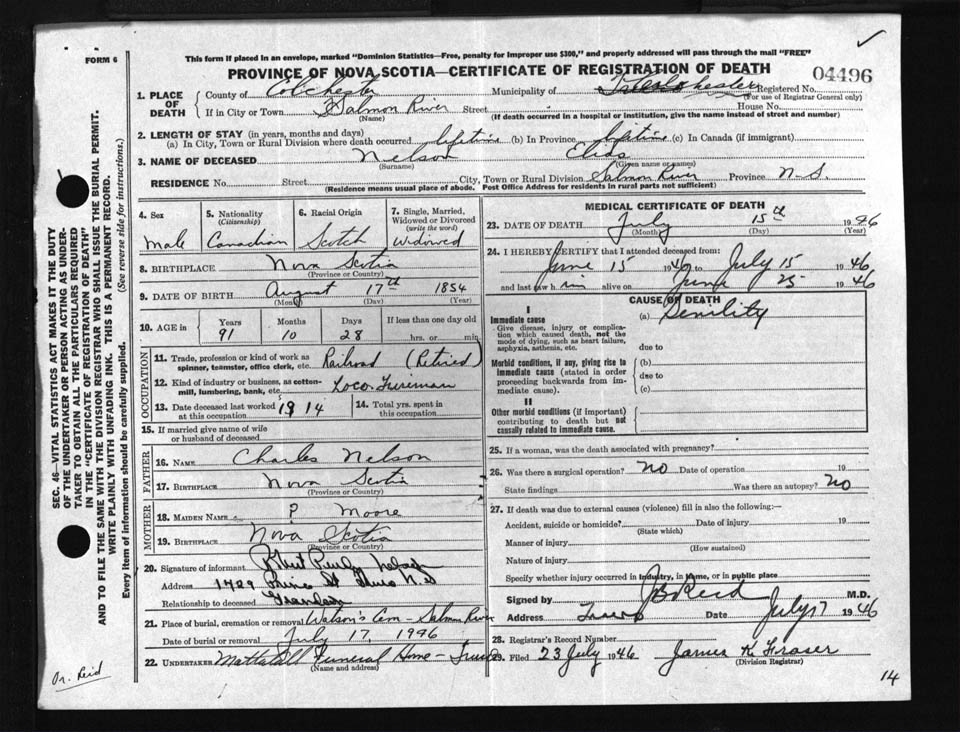 FORM 6
This form if placed in an envelope, marked "Dominion Statistics—Free, penalty for improper use $300," and properly addressed will pass through the mail "FREE"
PROVINCE OF NOVA SCOTIA—CERTIFICATE OF REGISTRATION OF DEATH
04496
1. PLACE OF DEATH
County of Colchester Municipality of Colchester Registered No.
(For use of Registrar General only)
If in City or Town Salmon River Street House No.
(Name) (If death occurred in a hospital or institution, give the name instead of street and number)
2. LENGTH OF STAY (in years, months and days)
(a) In City, Town or Rural Division where death occurred lifetime (b) In Province lifetime (c) In Canada (if immigrant)
3. NAME OF DECEASED Nelson
(Surname) (Given name or names)
RESIDENCE No. Street City, Town or Rural Division Salmon River Province N-S.
(Residence means usual place of abode. Post Office Address for residents in rural parts not sufficient)
4. Sex
male
5. Nationality
(Citizenship)
Canadian
6. Racial Origin
Scotch
7. Single, Married, Widowed or Divorced
(write the word)
Widowed
8. BIRTHPLACE Nova Scotia
(Province or Country)
9. DATE OF BIRTH August 17th 1854
(Month) (Day) (Year)
10. AGE in
Years Months Days If less than one day old
91 10 28 hrs. or min.
OCCUPATION
11. Trade, profession or kind of work as spinner, teamster, office clerk, etc. Railroad (Retired)
12. Kind of industry or business, as cotton-mill, lumbering, bank, etc. Loco. Fireman
13. Date deceased last worked at this occupation 1914
14. Total yrs. spent in this occupation
15. If married give name of wife or husband of deceased
FATHER
16. NAME Charles Nelson
17. BIRTHPLACE Nova Scotia
(Province or Country)
MOTHER
18. MAIDEN NAME ? Moore
19. BIRTHPLACE Nova Scotia
(Province or Country)
20. Signature of informant Robert
Address Prince St Truro N.S
Relationship to deceased Grandson
21. Place of burial, cremation or removal Watson's Cem - Salmon River
Date of burial or removal July 17, 1946
22. UNDERTAKER Mattatall Funeral Home - Truro
(Name and address)
MEDICAL CERTIFICATE OF DEATH
23. DATE OF DEATH July 15th 1946
(Month) (Day) (Year)
24. I HEREBY CERTIFY that I attended deceased from:
June 15 1946 to July 15 1946
and last saw him alive on June 25 1946
CAUSE OF DEATH
I
Immediate cause
Give disease, injury or complication which caused death, not the mode of dying, such as heart failure, asphyxia, asthenia, etc.
(a) Senility
due to
Morbid conditions, if any, giving rise to immediate cause (stated in order proceeding backwards from immediate cause).
(b)
due to
(c)
II
Other morbid conditions (if important) contributing to death but not causally related to immediate cause.
25. If a woman, was the death associated with pregnancy?
26. Was there a surgical operation? No Date of operation 19
State findings Was there an autopsy? No
27. If death was due to external causes (violence) fill in also the following:—
Accident, suicide or homicide? Date of injury 19
(State which)
Manner of injury
(How sustained)
Nature of injury
Specify whether injury occurred in industry, in home, or in public place
Signed by JB Reid M.D.
Address Truro Date July 17 1946
28. Registrar's Record Number
29. Filed 23 July 1946 James K. Fraser
(Division Registrar)
14
Dr. Reid
SEC. 46—VITAL STATISTICS ACT MAKES IT THE DUTY
OF THE UNDERTAKER OR PERSON ACTING AS UNDER-
TAKER TO OBTAIN ALL THE PARTICULARS REQUIRED
IN THE "CERTIFICATE OF REGISTRATION OF DEATH"
AND TO FILE THE SAME WITH THE DIVISION REGISTRAR WHO SHALL ISSUE THE BURIAL PERMIT.
WRITE PLAINLY WITH UNFADING INK. THIS IS A PERMANENT RECORD.
Every item of information should be carefully supplied. (See reverse side for instructions.)